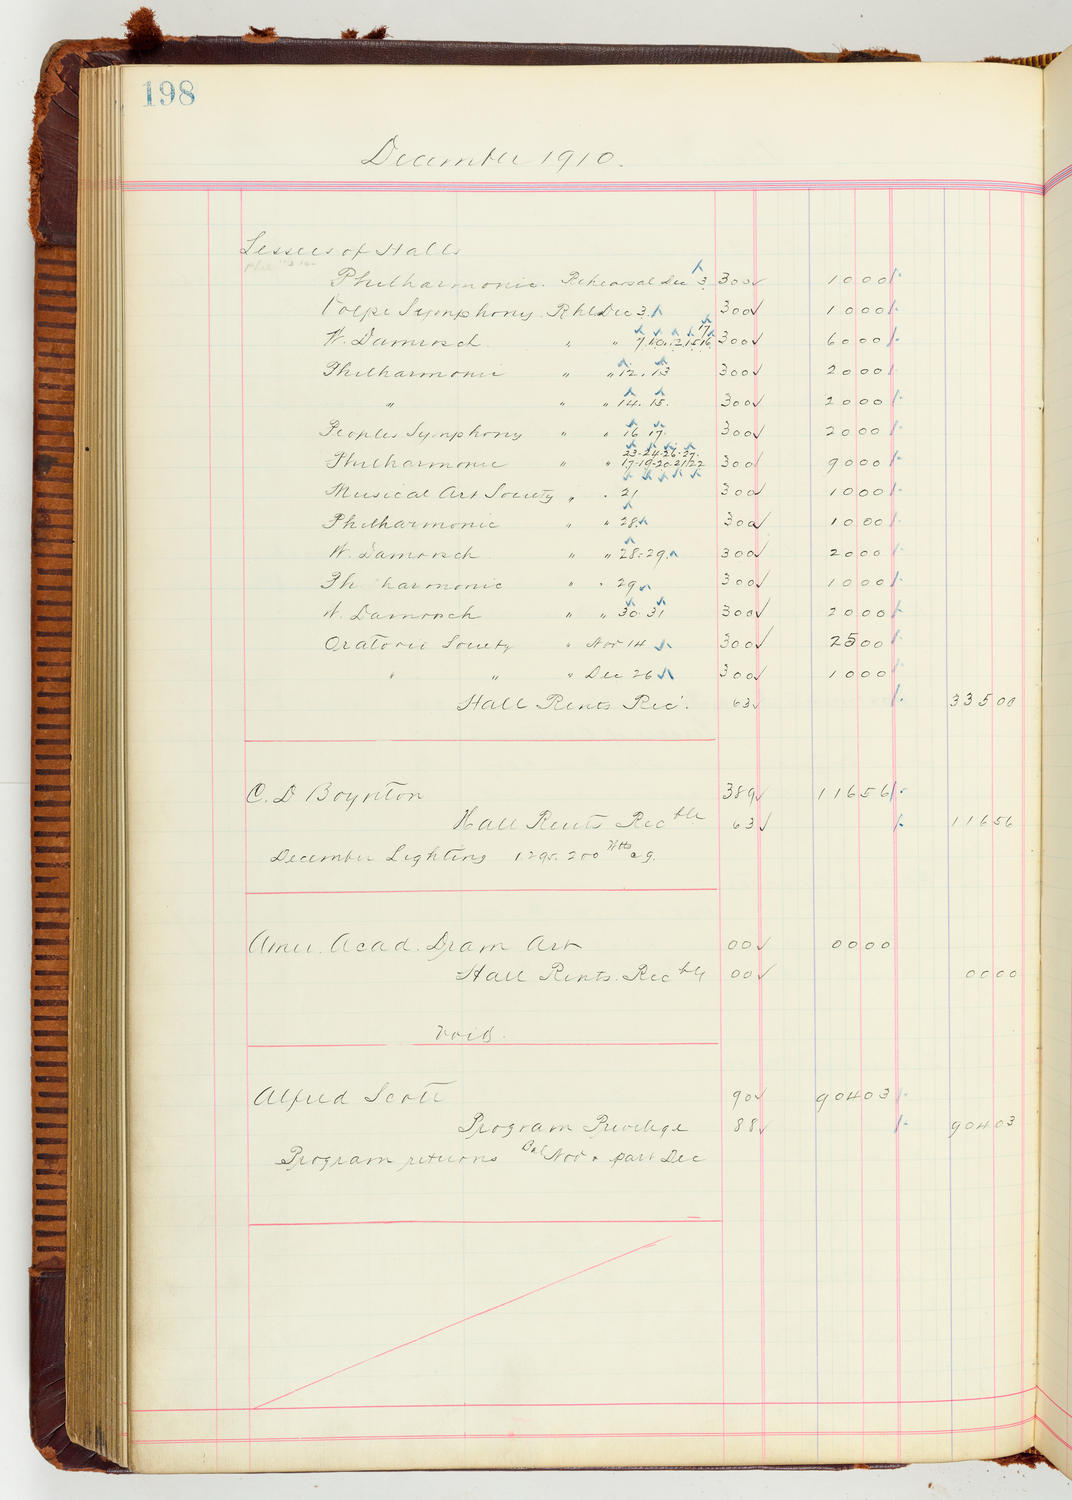 198
December 1910.
Lessees of Halls
Philharmonic. Rehearsal Dec 3. 300 1000
Volpe Symphony. Rhl Dec 3. 300 1000
17
W. Damrosch " " 9.10.12.15.16. 300 6000
Philharmonic " " 12. 13 300 2000
" " " 14. 15. 300 2000
Peoples Symphony " " 16 17. 300 2000
23.24.26.27.
Philharmonic " " 17.19.20.21/22 300 9000
Musical Art Society " . 21 300 1000
Philharmonic " " 28. 300 1000
W. Damrosch " " 28.29. 300 2000
Ph harmonic " . 29 300 1000
W. Damrosch " " 30. 31 300 2000
Oratorio Society " Nov 14 300 2500
" " " Dec 26 300 1000
Hall Rents Rec'. 63 33500
C. D Boynton 389 11656
Hall Rents Rec ble 63 11656
December Lighting 1295.200 Wtts @ 9.
Amer. Acad. Dram Art 00 0000
Hall Rents. Rec ble 00 0000
Void.
Alfred Scott 90 90403
Program Privilege 88 90403
Program returns Bal Nov & part Dec